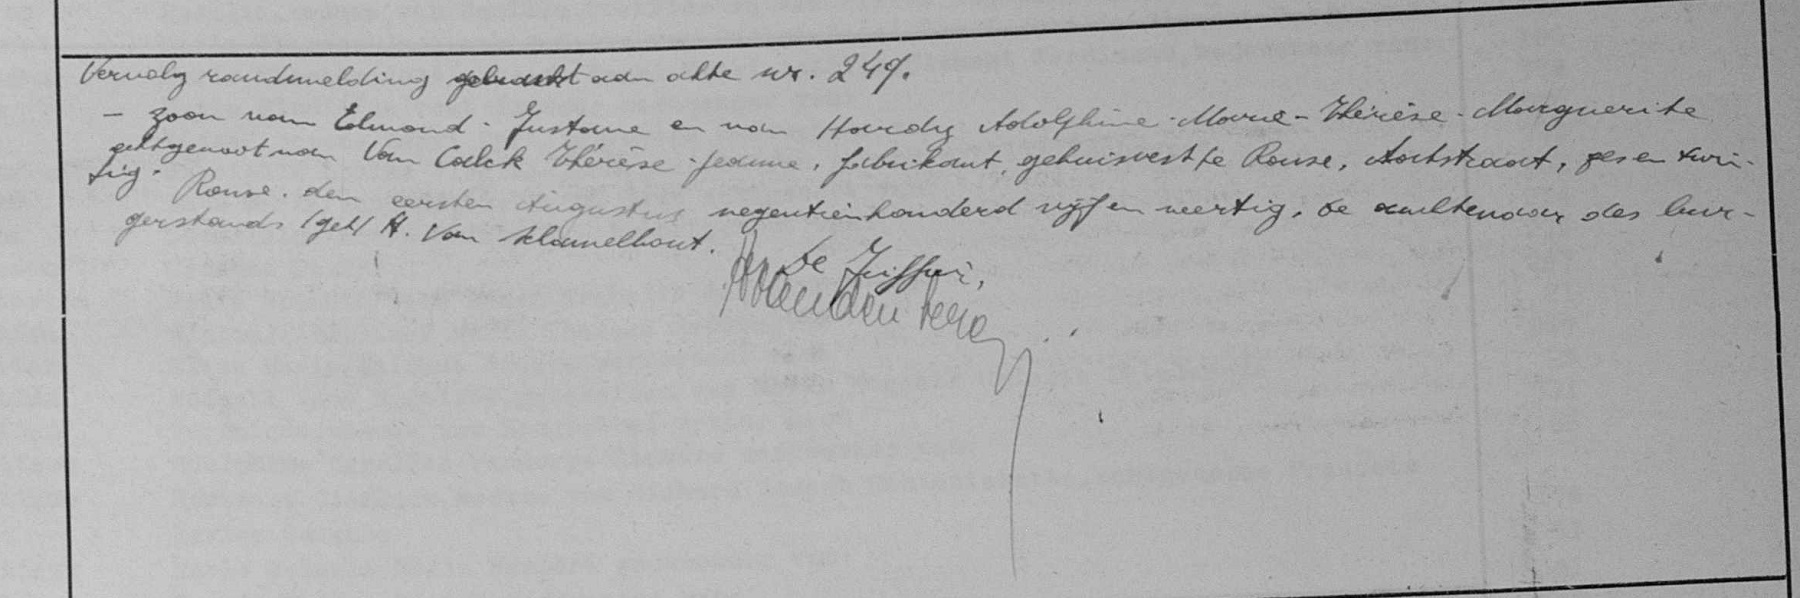 Vervolg randmelding gebracht aan akte nr. 249.
- zoon van Edmond - Gustave en van Hardy Adolphine - Marie - Thérèse - Marguerite
echtgenoot van Van Calck Thérèse - Jeanne, fabrikant, gehuisvest te Ronse, Aatstraat, zes en twin-
tig. Ronse, den eersten Augustus negentienhonderd vijf en veertig. De ambtenaar des bur-
gerstands (get) H. Van
De Griffier,